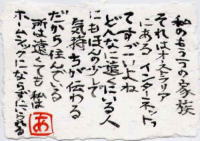 私のもう一つの家族
それはオーストラリア
にある インターネットっ
てすごいよね
どんなに遠くにいる人
にもほんの少しで
気持ちが伝わる
だから住んでいる
所は遠くても私は
ホームシックにならずにいられる
あ